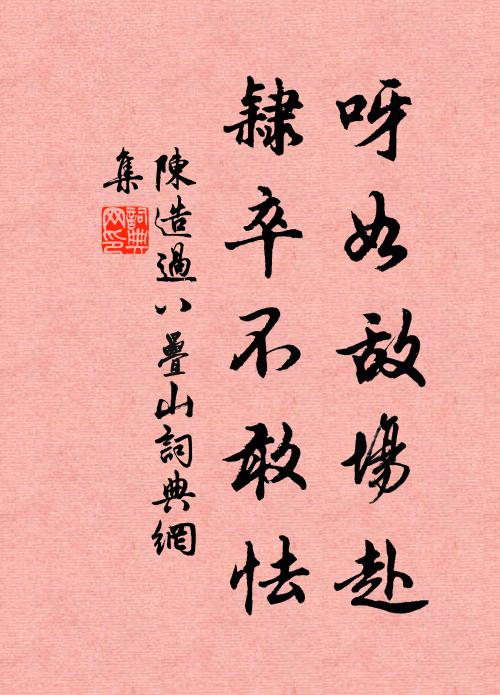 呀如敌場赴
隸卒不敢怯
陳造過八疊山詞典網
集
詞典网印